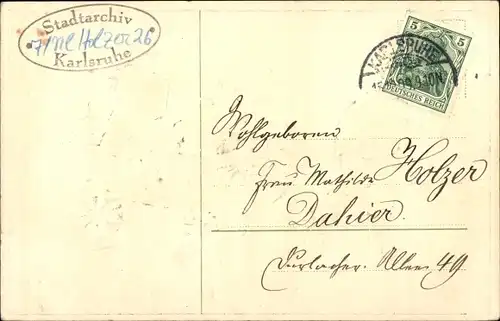 Stadtarchiv
7/Nl Holzer 26
Karlsruhe
5 5
KARLSRUHE
DEUTSCHES REICH
Wohlgeboren
Frau Mathilde Holzer
Dahier.
Durlacher. Allee 49